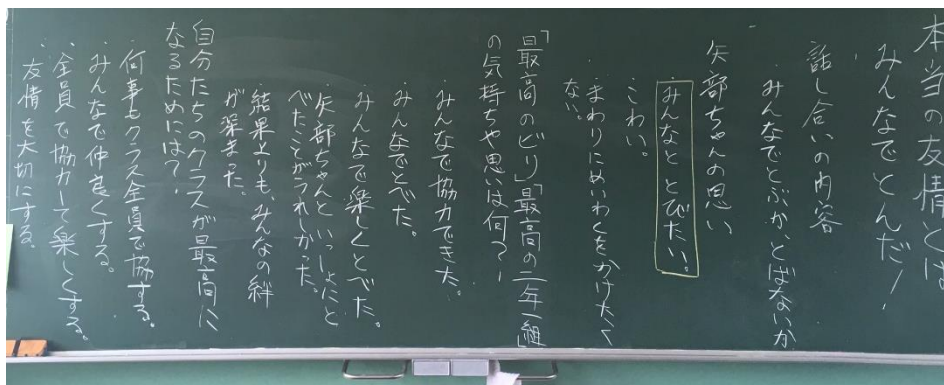 本当の友情とは
みんなでとんだ!
話し合いの内容
みんなでとぶか、とばないか
矢部ちゃんの思い
みんなととびたい。
こわい。
まわりにめいわくをかけたく
ない。
「最高のビリ」「最高の二年一組」
の気持ちや思いは何?
・みんなで協力できた。
・みんなでとべた。
・みんなで楽しくとべた。
・矢部ちゃんといっしょにと
べたことがうれしかった。
・結果よりも、みんなの絆
が深まった。
自分たちのクラスが最高に
なるためには?
・何事もクラス全員で協する。
・みんなで仲良くする。
・全員で協力して楽しくする。
・友情を大切にする。